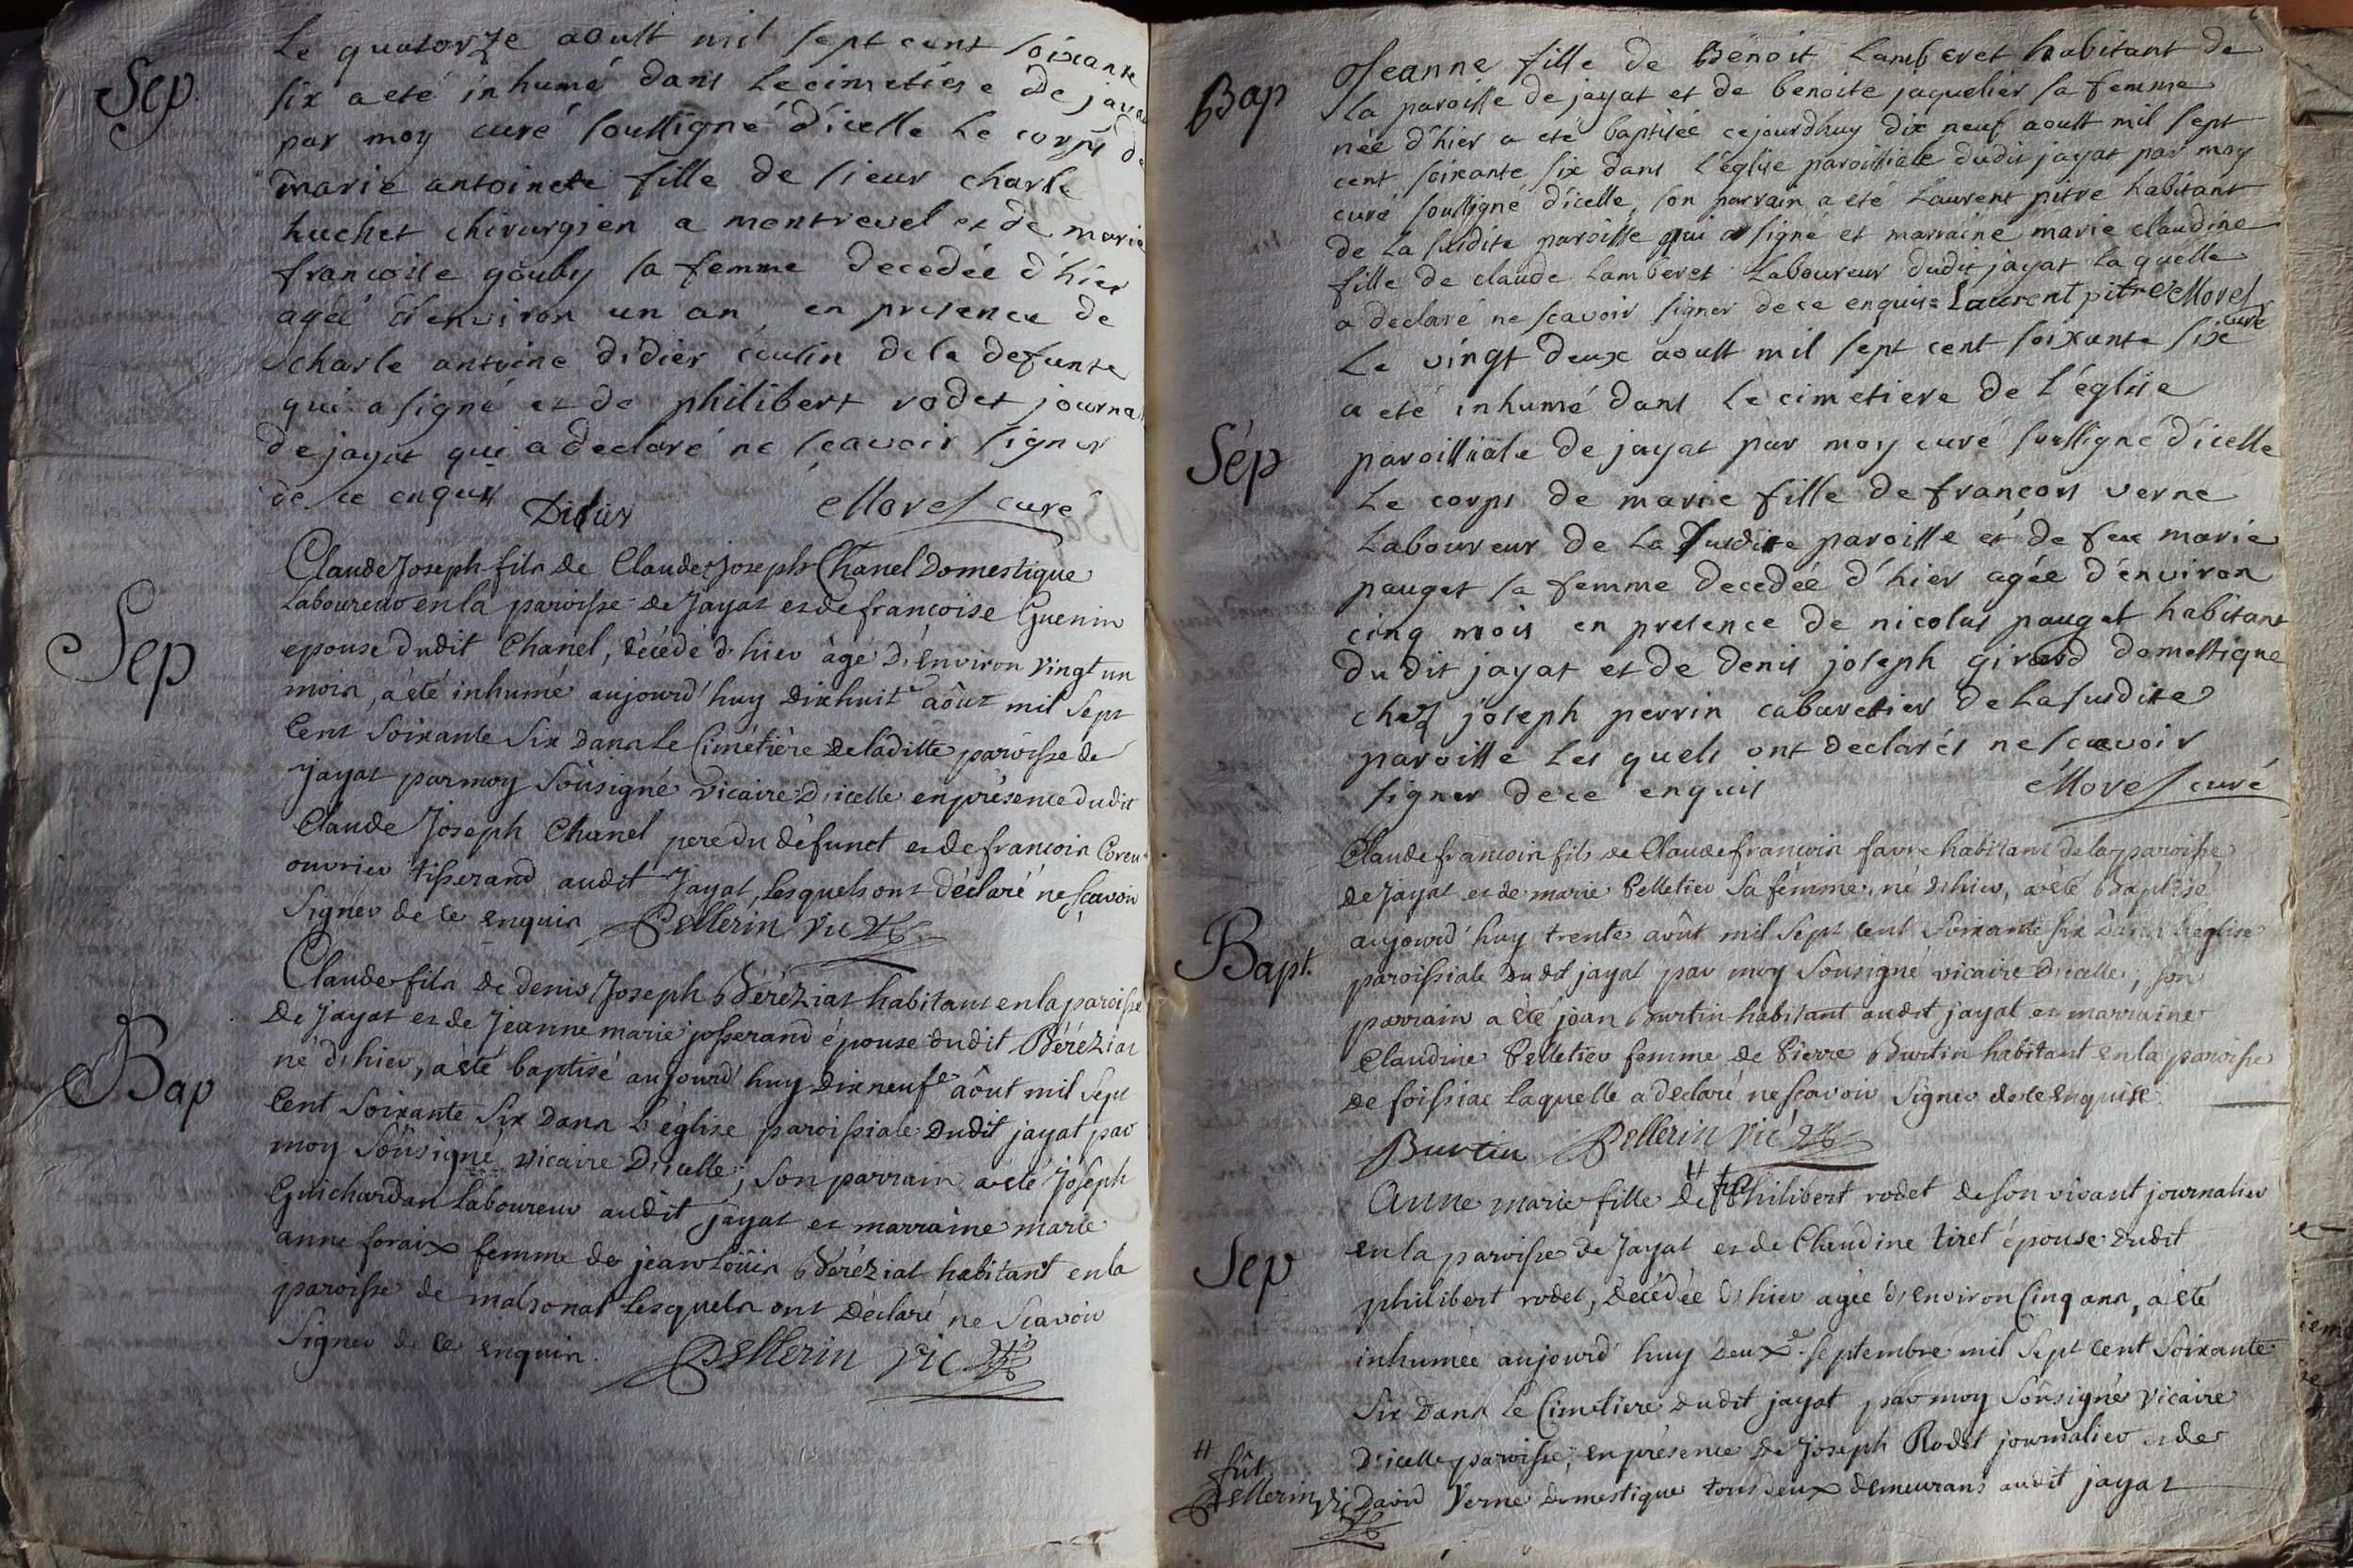 Sep.
Le quatorze aoust mil sept cent soixante
six a eté inhumé dans le cimetiere de jayat
par moy curé soussigné d'icelle Le corps de
marie antoinete fille de sieur charle
huchet chirurgien a montrevel et de marie
francoise gouby sa femme decedée d'hier
agée d'environ un an en presence de
charle antoine didier cousin de la defunte
qui a signé et de philibert rodet journa
de jayat qui a declaré ne scavoir signer
de ce enquis Didier Morel curé
Sep
Claude Joseph fils de Claude Joseph Chanel Domestique
Laboureur en la paroisse de Jayat et de françoise Guenin
epouse dudit Chanel, décédé d'hier âgé d'environ vingt un
mois, a été inhumé aujourd'huy dixhuit aôut mil sept
Cent Soixante Six dans le Cimétière de laditte paroisse de
Jayat par moy Sousigné vicaire d'icelle en présence dudit
Claude Joseph Chanel pere du défunct et de francois
ouvrier tisserand audit Jayat, lesquels ont déclaré ne sçavoir
Signer de ce enquis Pellerin vic
Bap
Claude fils de denis Joseph Béréziat habitant en la paroisse
de Jayat et de Jeanne marie josserand épouse dudit Béréziat
né d'hier, a été baptisé aujourd'huy dix neuf aôut mil sept
Cent Soixante Six dans l'église paroissiale dudit jayat par
moy Sousigné vicaire d'icelle; Son parrain a été Joseph
Guichardan laboureur audit jayat et marraine marie
anne foraix femme de jean loüis Béréziat habitant en la
paroisse de malsonat lesquels ont déclaré ne Scavoir
Signer de ce enquis. Pellerin vic
Bap
Jeanne fille de Benoit Lamberet habitant de
la paroisse de jayat et de benoite jaquelier sa femme
née d'hier a eté baptisée cejourdhuy dix neuf aoust mil sept
cent soixante six dans l'église paroissiale dudit jayat par moy
curé soussigné d'icelle, son parrain a eté Laurent pitre habitant
de La susdite paroisse qui a signé et marraine marie claudine
fille de claude Lamberet Laboureur dudit jayat laquelle
a declaré ne scavoir signer de ce enquise Laurent pitre Morel
curé
Sép
Le vingt deux aoust mil sept cent soixante six
a eté inhumé dans Le cimetiere de l'église
paroissiale de jayat par moy curé soussigné d'icelle
Le corps de marie fille de françois verne
Laboureur de La susdite paroisse et de feue marie
pauget sa femme decedée d'hier agée d'environ
cinq mois en presence de nicolas pauget habitant
du dit jayat et de denis joseph girard domestique
chez joseph perrin cabaretier de La susdite
paroisse Les quels ont declarés ne scavoir
signer de ce enquis Morel curé
Bapt.
Claude francois fils de Claude francois favre habitant de la paroisse
de Jayat et de marie Pelletier Sa fémme, né d'hier, a été Baptisé
aujourd'huy trente aôut mil Sept cent Soixante Six dans l'église
paroissiale dudit jayat par moy Sousigné vicaire d'icelle; son
parrain a été jean Burtin habitant audit jayat et marraine
Claudine Pelletier femme de Pierre Burtin habitant en la paroisse
de foissiac laquelle a declaré ne scavoir Signer de ce enquise.
Burtin Pellerin vic
Sep
Anne marie fille de # Philibert rodet de son vivant journalier
en la paroisse de Jayat et de Claudine tiret épouse dudit
philibert rodet, décédée d'hier agée d'environ Cinq ans, a été
inhumée aujourd'huy deux septembre mil Sept Cent Soixante
Six dans le Cimetiere dudit jayat par moy Sousigné vicaire
d'icelle paroisse, en présence de Joseph Rodet journalier et de
David Verne domestique tous deux demeurans audit jayat
#
fût
Pellerin vic